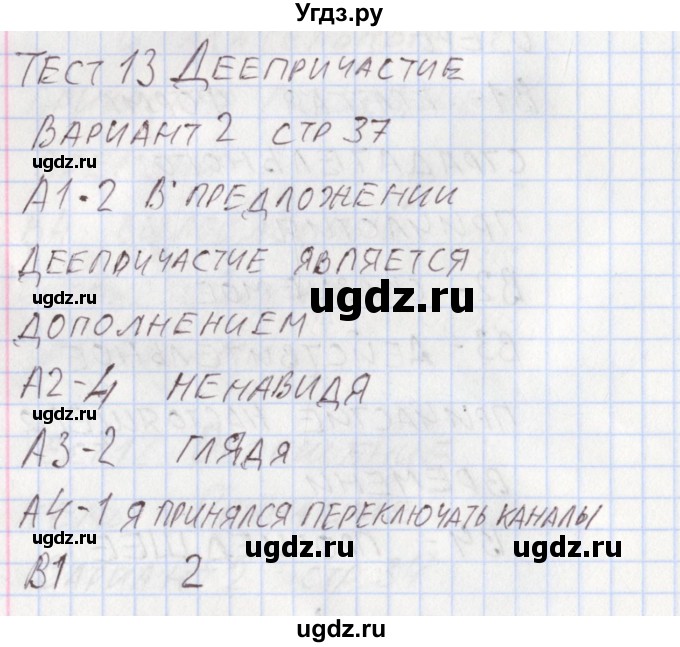 Угдз.ру
ТЕСТ 13 ДЕЕПРИЧАСТИЕ
ВАРИАНТ 2 СТР 37
ugdz.ru
А1-2 В ПРЕДЛОЖЕНИИ
ДЕЕПРИЧАСТИЕ ЯВЛЯЕТСЯ
ugdz.ru ugdz.ru
ДОПОЛНЕНИЕМ
А2-4 НЕНАВИДЯ
ugdz.ru
А3-2 ГЛЯДЯ
А4-1 Я ПРИНЯЛСЯ ПЕРЕКЛЮЧАТЬ КАНАЛЫ
ugdz.ru ugdz.ru
В1 2
ugdz.ru
ugdz.ru